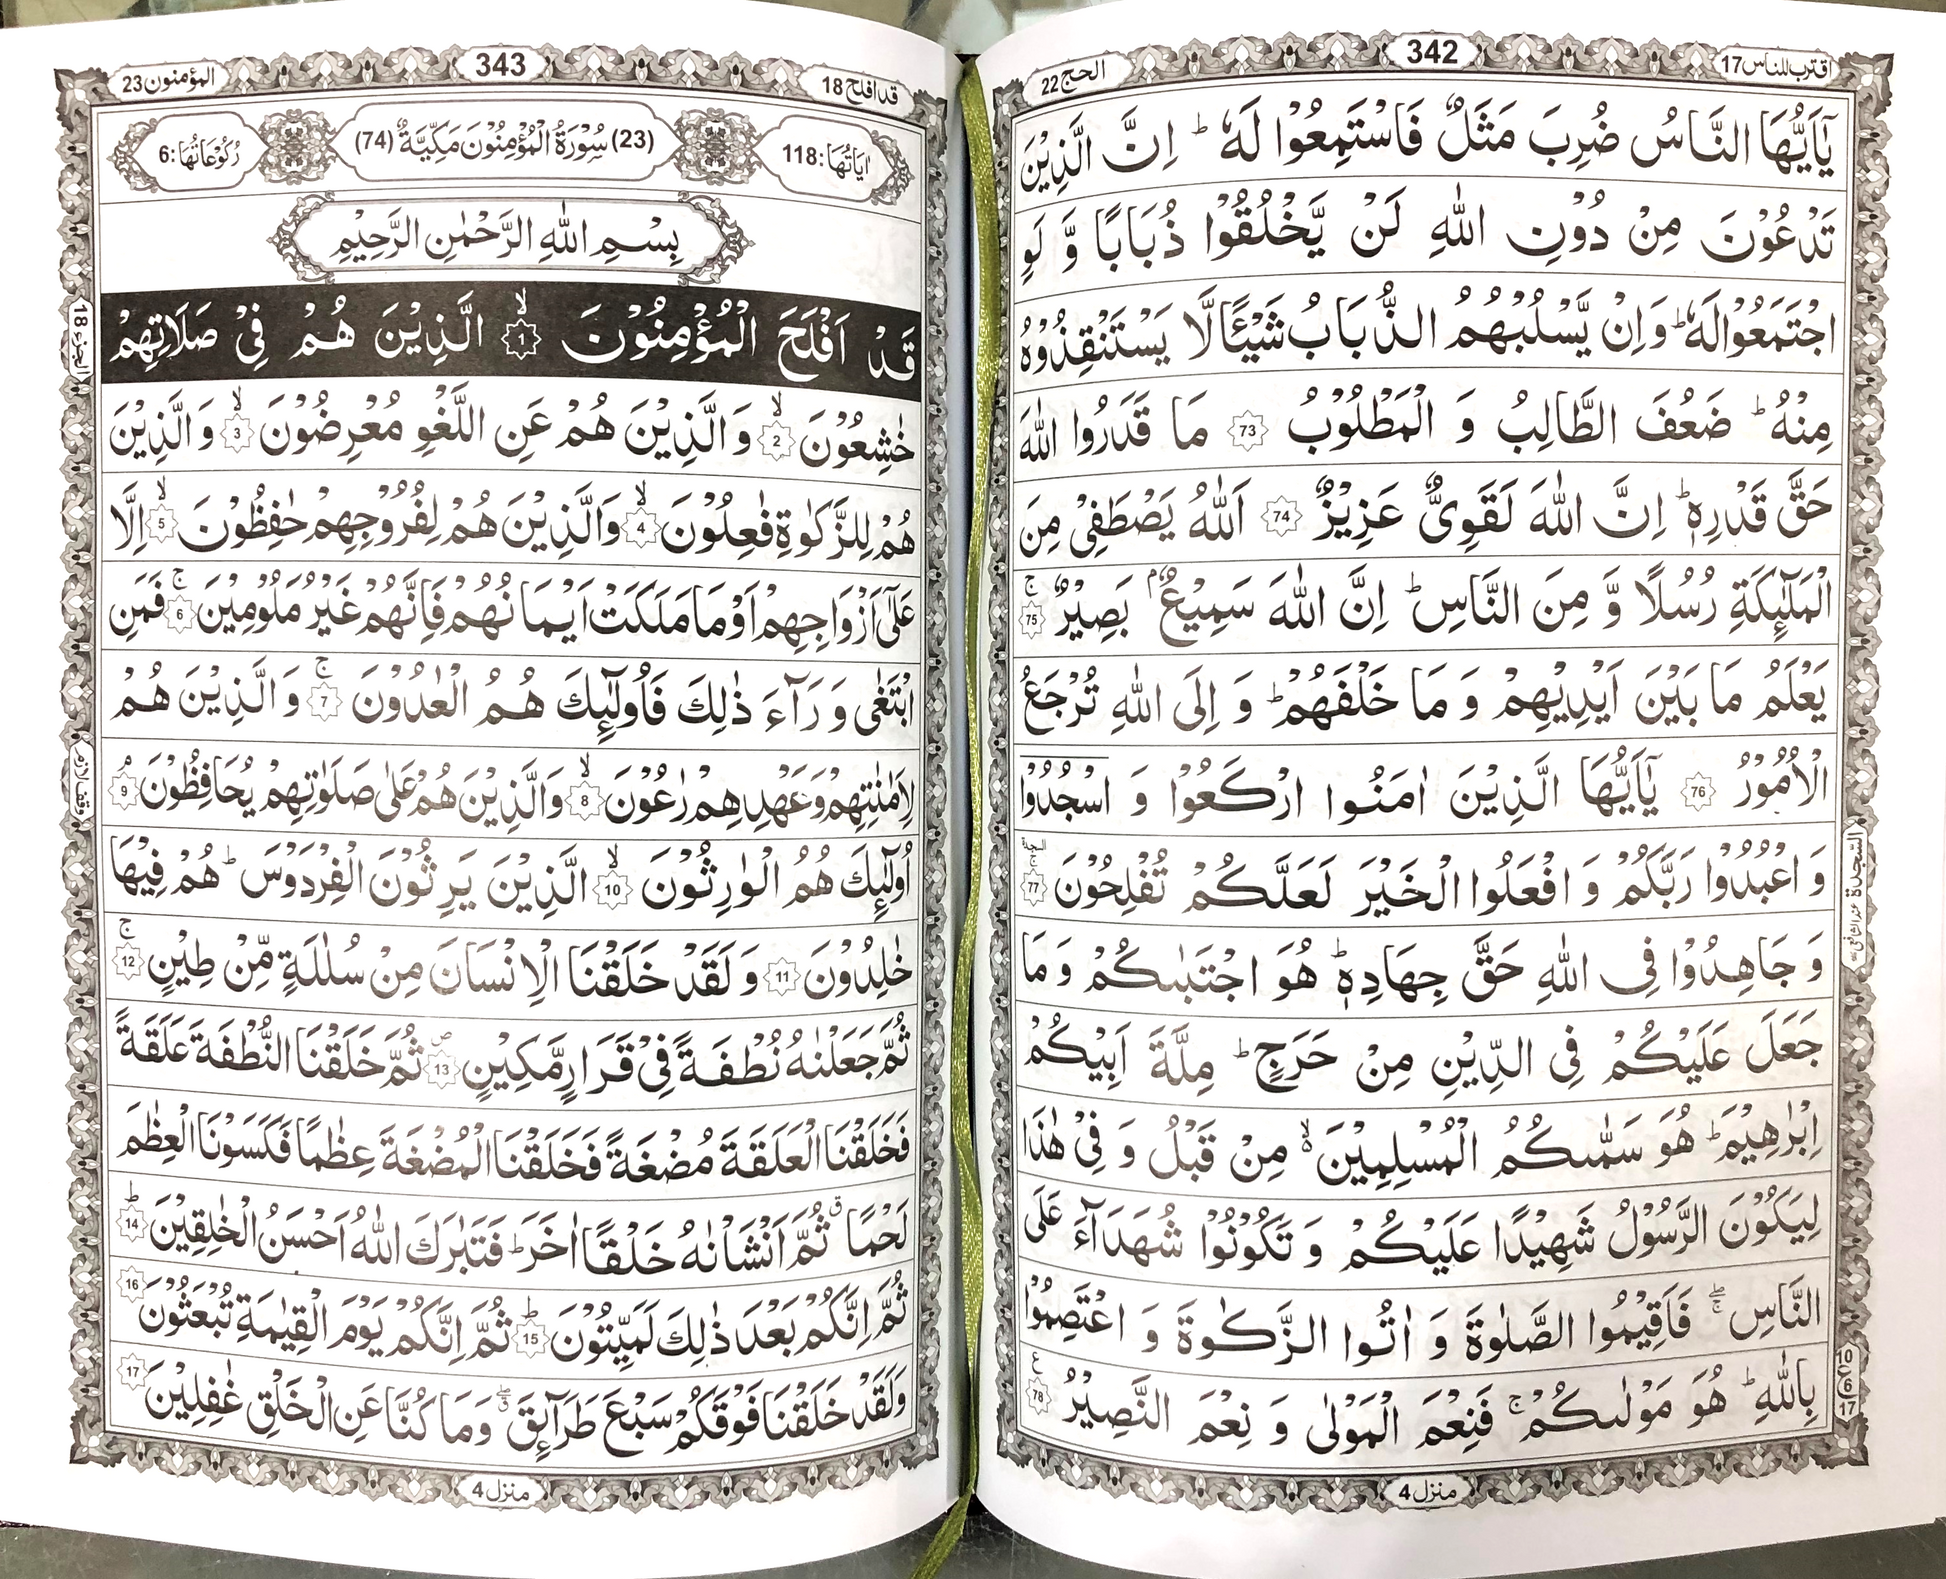 اقترب للناس 17
342
الحج 22
يٰۤاَيُّهَا النَّاسُ ضُرِبَ مَثَلٌ فَاسْتَمِعُوْا لَهٗ ؕ اِنَّ الَّذِيْنَ
تَدْعُوْنَ مِنْ دُوْنِ اللّٰهِ لَنْ يَّخْلُقُوْا ذُبَابًا وَّ لَوِ
اجْتَمَعُوْا لَهٗ ؕ وَاِنْ يَّسْلُبْهُمُ الذُّبَابُ شَيْـًٔا لَّا يَسْتَنْقِذُوْهُ
مِنْهُ ؕ ضَعُفَ الطَّالِبُ وَ الْمَطْلُوْبُ 73 مَا قَدَرُوا اللّٰهَ
حَقَّ قَدْرِهٖ ؕ اِنَّ اللّٰهَ لَقَوِىٌّ عَزِيْزٌ 74 اَللّٰهُ يَصْطَفِىْ مِنَ
الْمَلٰٓئِكَةِ رُسُلًا وَّ مِنَ النَّاسِ ؕ اِنَّ اللّٰهَ سَمِيْعٌۢ بَصِيْرٌ ۚ 75
يَعْلَمُ مَا بَيْنَ اَيْدِيْهِمْ وَ مَا خَلْفَهُمْ ؕ وَ اِلَى اللّٰهِ تُرْجَعُ
الْاُمُوْرُ 76 يٰۤاَيُّهَا الَّذِيْنَ اٰمَنُوا ارْكَعُوْا وَ اسْجُدُوْا
وَ اعْبُدُوْا رَبَّكُمْ وَ افْعَلُوا الْخَيْرَ لَعَلَّكُمْ تُفْلِحُوْنَ ۚ 77 السجدة
السجدة عند الشافعي
وَ جَاهِدُوْا فِى اللّٰهِ حَقَّ جِهَادِهٖ ؕ هُوَ اجْتَبٰىكُمْ وَ مَا
جَعَلَ عَلَيْكُمْ فِى الدِّيْنِ مِنْ حَرَجٍ ؕ مِلَّةَ اَبِيْكُمْ
اِبْرٰهِيْمَ ؕ هُوَ سَمّٰىكُمُ الْمُسْلِمِيْنَ ۙ۬ مِنْ قَبْلُ وَ فِىْ هٰذَا
لِيَكُوْنَ الرَّسُوْلُ شَهِيْدًا عَلَيْكُمْ وَ تَكُوْنُوْا شُهَدَآءَ عَلَى
النَّاسِ ۖۚ فَاَقِيْمُوا الصَّلٰوةَ وَ اٰتُوا الزَّكٰوةَ وَ اعْتَصِمُوْا
بِاللّٰهِ ؕ هُوَ مَوْلٰىكُمْ ۚ فَنِعْمَ الْمَوْلٰى وَ نِعْمَ النَّصِيْرُ ع 78
10
ع
17
منزل 4
قد افلح 18
343
المؤمنون 23
اٰيَاتُهَا : 118
(23) سُوْرَةُ الْمُؤْمِنُوْنَ مَكِّيَّةٌ (74)
رُكُوْعَاتُهَا : 6
بِسْمِ اللّٰهِ الرَّحْمٰنِ الرَّحِيْمِ
الجزء 18
قَدْ اَفْلَحَ الْمُؤْمِنُوْنَ ۙ 1 الَّذِيْنَ هُمْ فِىْ صَلَاتِهِمْ
خٰشِعُوْنَ ۙ 2 وَ الَّذِيْنَ هُمْ عَنِ اللَّغْوِ مُعْرِضُوْنَ ۙ 3 وَ الَّذِيْنَ
هُمْ لِلزَّكٰوةِ فٰعِلُوْنَ ۙ 4 وَالَّذِيْنَ هُمْ لِفُرُوْجِهِمْ حٰفِظُوْنَ ۙ 5 اِلَّا
عَلٰٓى اَزْوَاجِهِمْ اَوْ مَا مَلَكَتْ اَيْمَانُهُمْ فَاِنَّهُمْ غَيْرُ مَلُوْمِيْنَ ۚ 6 فَمَنِ
ابْتَغٰى وَ رَآءَ ذٰلِكَ فَاُولٰٓئِكَ هُمُ الْعٰدُوْنَ ۚ 7 وَ الَّذِيْنَ هُمْ
وقف لازم
لِاَمٰنٰتِهِمْ وَعَهْدِهِمْ رٰعُوْنَ ۙ 8 وَالَّذِيْنَ هُمْ عَلٰى صَلَوٰتِهِمْ يُحَافِظُوْنَ ۘ 9
اُولٰٓئِكَ هُمُ الْوٰرِثُوْنَ ۙ 10 الَّذِيْنَ يَرِثُوْنَ الْفِرْدَوْسَ ؕ هُمْ فِيْهَا
خٰلِدُوْنَ 11 وَ لَقَدْ خَلَقْنَا الْاِنْسَانَ مِنْ سُلٰلَةٍ مِّنْ طِيْنٍ ۚ 12
ثُمَّ جَعَلْنٰهُ نُطْفَةً فِىْ قَرَارٍ مَّكِيْنٍ ۪ 13 ثُمَّ خَلَقْنَا النُّطْفَةَ عَلَقَةً
فَخَلَقْنَا الْعَلَقَةَ مُضْغَةً فَخَلَقْنَا الْمُضْغَةَ عِظٰمًا فَكَسَوْنَا الْعِظٰمَ
لَحْمًا ق ثُمَّ اَنْشَاْنٰهُ خَلْقًا اٰخَرَ ؕ فَتَبٰرَكَ اللّٰهُ اَحْسَنُ الْخٰلِقِيْنَ ؕ 14
ثُمَّ اِنَّكُمْ بَعْدَ ذٰلِكَ لَمَيِّتُوْنَ ؕ 15 ثُمَّ اِنَّكُمْ يَوْمَ الْقِيٰمَةِ تُبْعَثُوْنَ 16
وَلَقَدْ خَلَقْنَا فَوْقَكُمْ سَبْعَ طَرَآئِقَ ۖق وَمَا كُنَّا عَنِ الْخَلْقِ غٰفِلِيْنَ 17
منزل 4